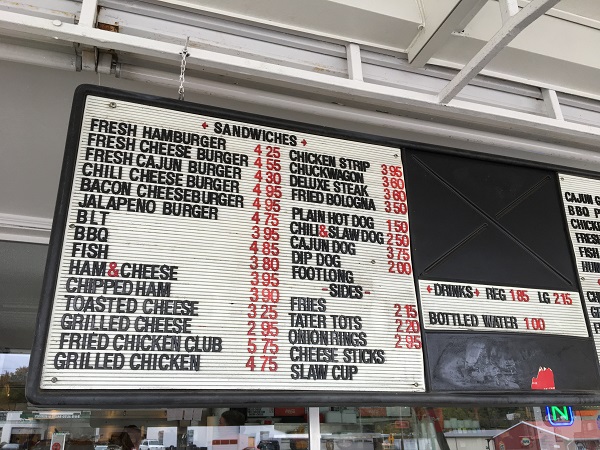 + SANDWICHES +
FRESH HAMBURGER 4 25
FRESH CHEESE BURGER 4 55
FRESH CAJUN BURGER 4 30
CHILI CHEESE BURGER 4 95
BACON CHEESEBURGER 4 95
JALAPENO BURGER 4 75
BLT 3 95
BBQ 4 85
FISH 3 80
HAM & CHEESE 3 95
CHIPPED HAM 3 90
TOASTED CHEESE 3 25
GRILLED CHEESE 2 95
FRIED CHICKEN CLUB 5 75
GRILLED CHICKEN 4 75
CHICKEN STRIP 3 95
CHUCKWAGON 3 60
DELUXE STEAK 3 60
FRIED BOLOGNA 3 50
PLAIN HOT DOG 1 50
CHILI & SLAW DOG 2 50
CAJUN DOG 3 75
DIP DOG 2 00
FOOTLONG
-SIDES-
FRIES 2 15
TATER TOTS 2 20
ONION RINGS 2 95
CHEESE STICKS
SLAW CUP
+ DRINKS + REG 1 85 LG 2 15
BOTTLED WATER 1 00
CAJUN
BBQ